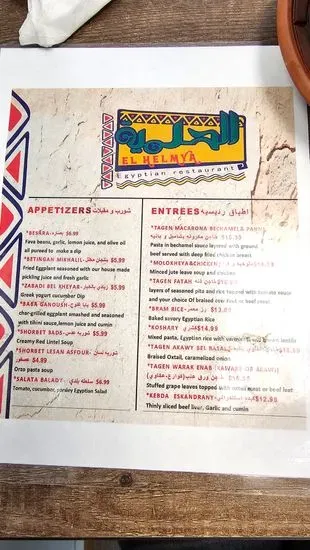 الحلمية
EL HELMYA
Egyptian restaurant
APPETIZERS شورب و مقبلات
*BESARA- بصاره $6.99
Fava beans, garlic, lemon juice, and olive oil
all pureed to make a dip
*BETINGAN MIKHALIL- باذنجان مخلل $5.99
Fried Eggplant seasoned with our house made
pickling juice and fresh garlic
*ZABADI BEL KHEYAR- زبادي بالخيار $5.99
Greek yogurt cucumber Dip
*BABA GANOUSH- بابا غنوج $5.99
char-grilled eggplant smashed and seasoned
with tihini sauce,lemon juice and cumin
*SHORBET BADS- شوربه عدس $5.99
Creamy Red Lintel Soup
*SHORBET LESAN ASFOUR- شوربه لسان
عصفور $4.99
Orzo pasta soup
*SALATA BALADY- سلطه بلدي $6.99
Tomato, cucumber, parsley Egyptian Salad
ENTREES اطباق رئيسيه
*TAGEN MACARONA BECHAMELA
Pasta in bechamel sauce layered with ground
beef served with deep fried chicken breast
*MOLOKHEYA&CHICKEN
Minced jute leave soup and chicken
*TAGEN FATAH
layers of seasoned pita and rice tocced with tomato
and your choice Of braised
*BRAM RICE- ارز معمر $13.99
Baked savory Egyptian Rice
*KOSHARY كشري $14.99
Mixed pasta, Egyptian rice with
*TAGEN AKAWY BEL BASAL
Braised Oxtail, caramelized onion
*TAGEN WARAK ENAB (KAWARE OR AKAWI)
Stuffed grape leaves topped with
*KEBDA ESKANDRANY- $12.98
Thinly sliced beef liver, Garlic and cumin